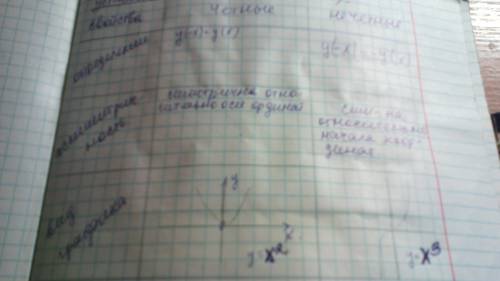 свойства
четные
нечетные
определение
y(-x)=y(x)
y(-x)=-y(x)
симметрична отно-
сительно оси ординат
сим-на
относительно
начала коор-
динат
вид
графика
y
x
y=x²
y=x³